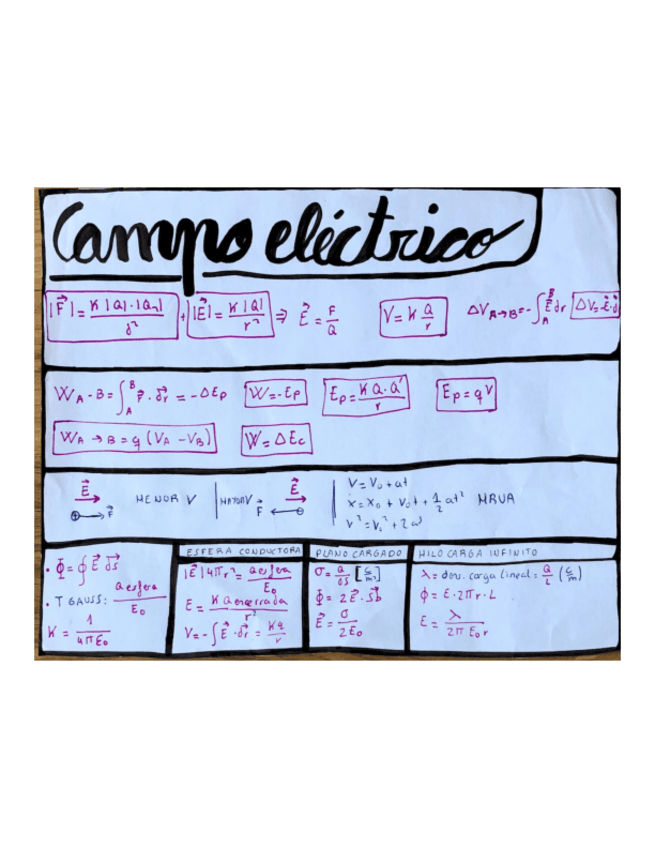 Campo eléctrico
|F⃗| = K |Q|·|Q₂| / d² + |E⃗| = K |Q| / r² ⇒ E⃗ = F / Q V = K Q / r ΔV A→B = -∫_A^B E⃗ dr ΔV = -E⃗·d
W A-B = ∫_A^B F⃗ · dr⃗ = -ΔEp W = -Ep Ep = KQ·Q' / r Ep = qV
W A → B = q (VA - VB) W = ΔEc
E⃗ → ⊕→ F⃗ MENOR V | MAYOR V F⃗ ←⊖ E⃗ →
V = V₀ + at
x = x₀ + V₀t + 1/2 at² MRUA
V² = V₀² + 2a
· Φ = ∮ E⃗ ds⃗
· T GAUSS: Qesfera / E₀
K = 1 / 4πE₀
ESFERA CONDUCTORA
|E⃗| 4πr² = Qesfera / E₀
E = K Qencerrada / r²
V = -∫ E⃗ · dr⃗ = Kq / r
PLANO CARGADO
σ = Q / ds [C/m²]
Φ = 2E⃗ · Sb
E⃗ = σ / 2E₀
HILO CARGA INFINITO
λ = dens. carga lineal = Q / L (C/m)
Φ = E · 2πr · L
E = λ / 2π E₀ r